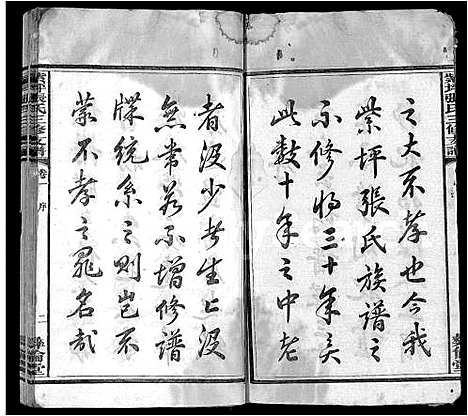 之大不孝也今我
紫坪張氏族譜之
不修将三十年矣
此数十年之中老
者没少者生亡没
無常若不增修譜
牒統系之則豈不
蒙不孝之罪名哉
紫坪張氏三修支譜
卷一
序
二
彝倫堂